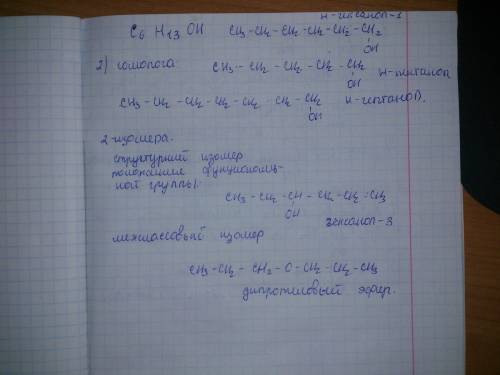 н-гексанол-1
C₆ H₁₃ OH CH₃ - CH₂ - CH₂ - CH₂ - CH₂ - CH₂
OH
2) гомолога: CH₃ - CH₂ - CH₂ - CH₂ - CH₂ н-пентанол
OH
CH₃ - CH₂ - CH₂ - CH₂ - CH₂ - CH₂ - CH₂ н-гептанол.
OH
2-изомера.
структурный изомер
положение функциональ-
ной группы).
CH₃ - CH₂ - CH - CH₂ - CH₂ - CH₃
OH гексанол-3
межклассовый изомер
CH₃ - CH₂ - CH₂ - O - CH₂ - CH₂ - CH₃
дипропиловый эфир.